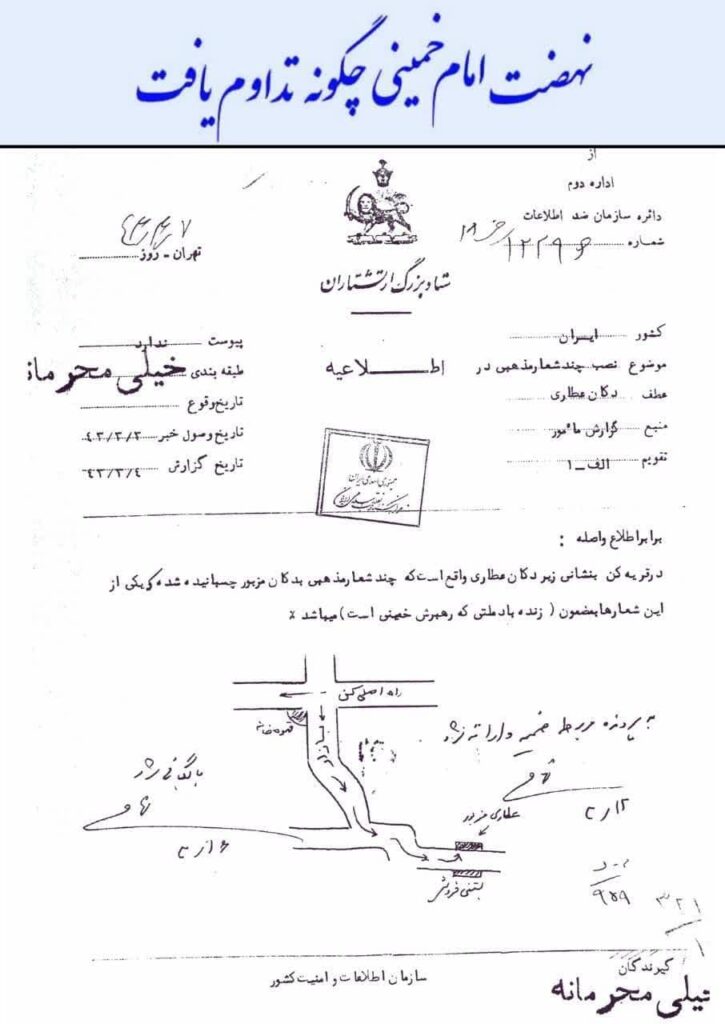 نهضت امام خمینی چگونه تداوم یافت
از
اداره دوم
دائره سازمان ضد اطلاعات
شماره
تهران - روز
ستاد بزرگ ارتشتاران
کشور ایران
موضوع نصب چند شعار مذهبی در
عطف دکان عطاری
منبع گزارش مأمور
تقویم الف-۱
اطلاعیه
پیوست ندارد
طبقه بندی خیلی محرمانه
تاریخ وقوع
تاریخ وصول خبر ۴۳/۳/۳
تاریخ گزارش ۴۳/۳/۴
جمهوری اسلامی ایران
برابر اطلاع واصله :
در قریه کن بنشانی زیر دکان عطاری واقع است که چند شعار مذهبی بدکان مزبور چسبانیده شده که یکی از
این شعارها بمضمون ( زنده باد ملتی که رهبرش خمینی است ) میباشد ٪
راه اصلی کن
قهوه خانه
بازار
عطاری مزبور
بستنی فروشی
به پرونده مربوطه ضمیمه و ارائه شود
بایگانی شود
۹۵۹
۳۲۱
گیرندگان
سازمان اطلاعات و امنیت کشور
خیلی محرمانه